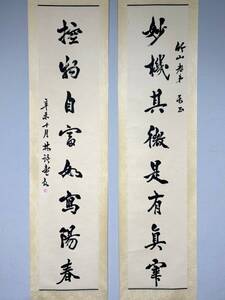 竹山老弟 属正
妙機其微是有真宰
控物自富如寫陽春
辛未十月